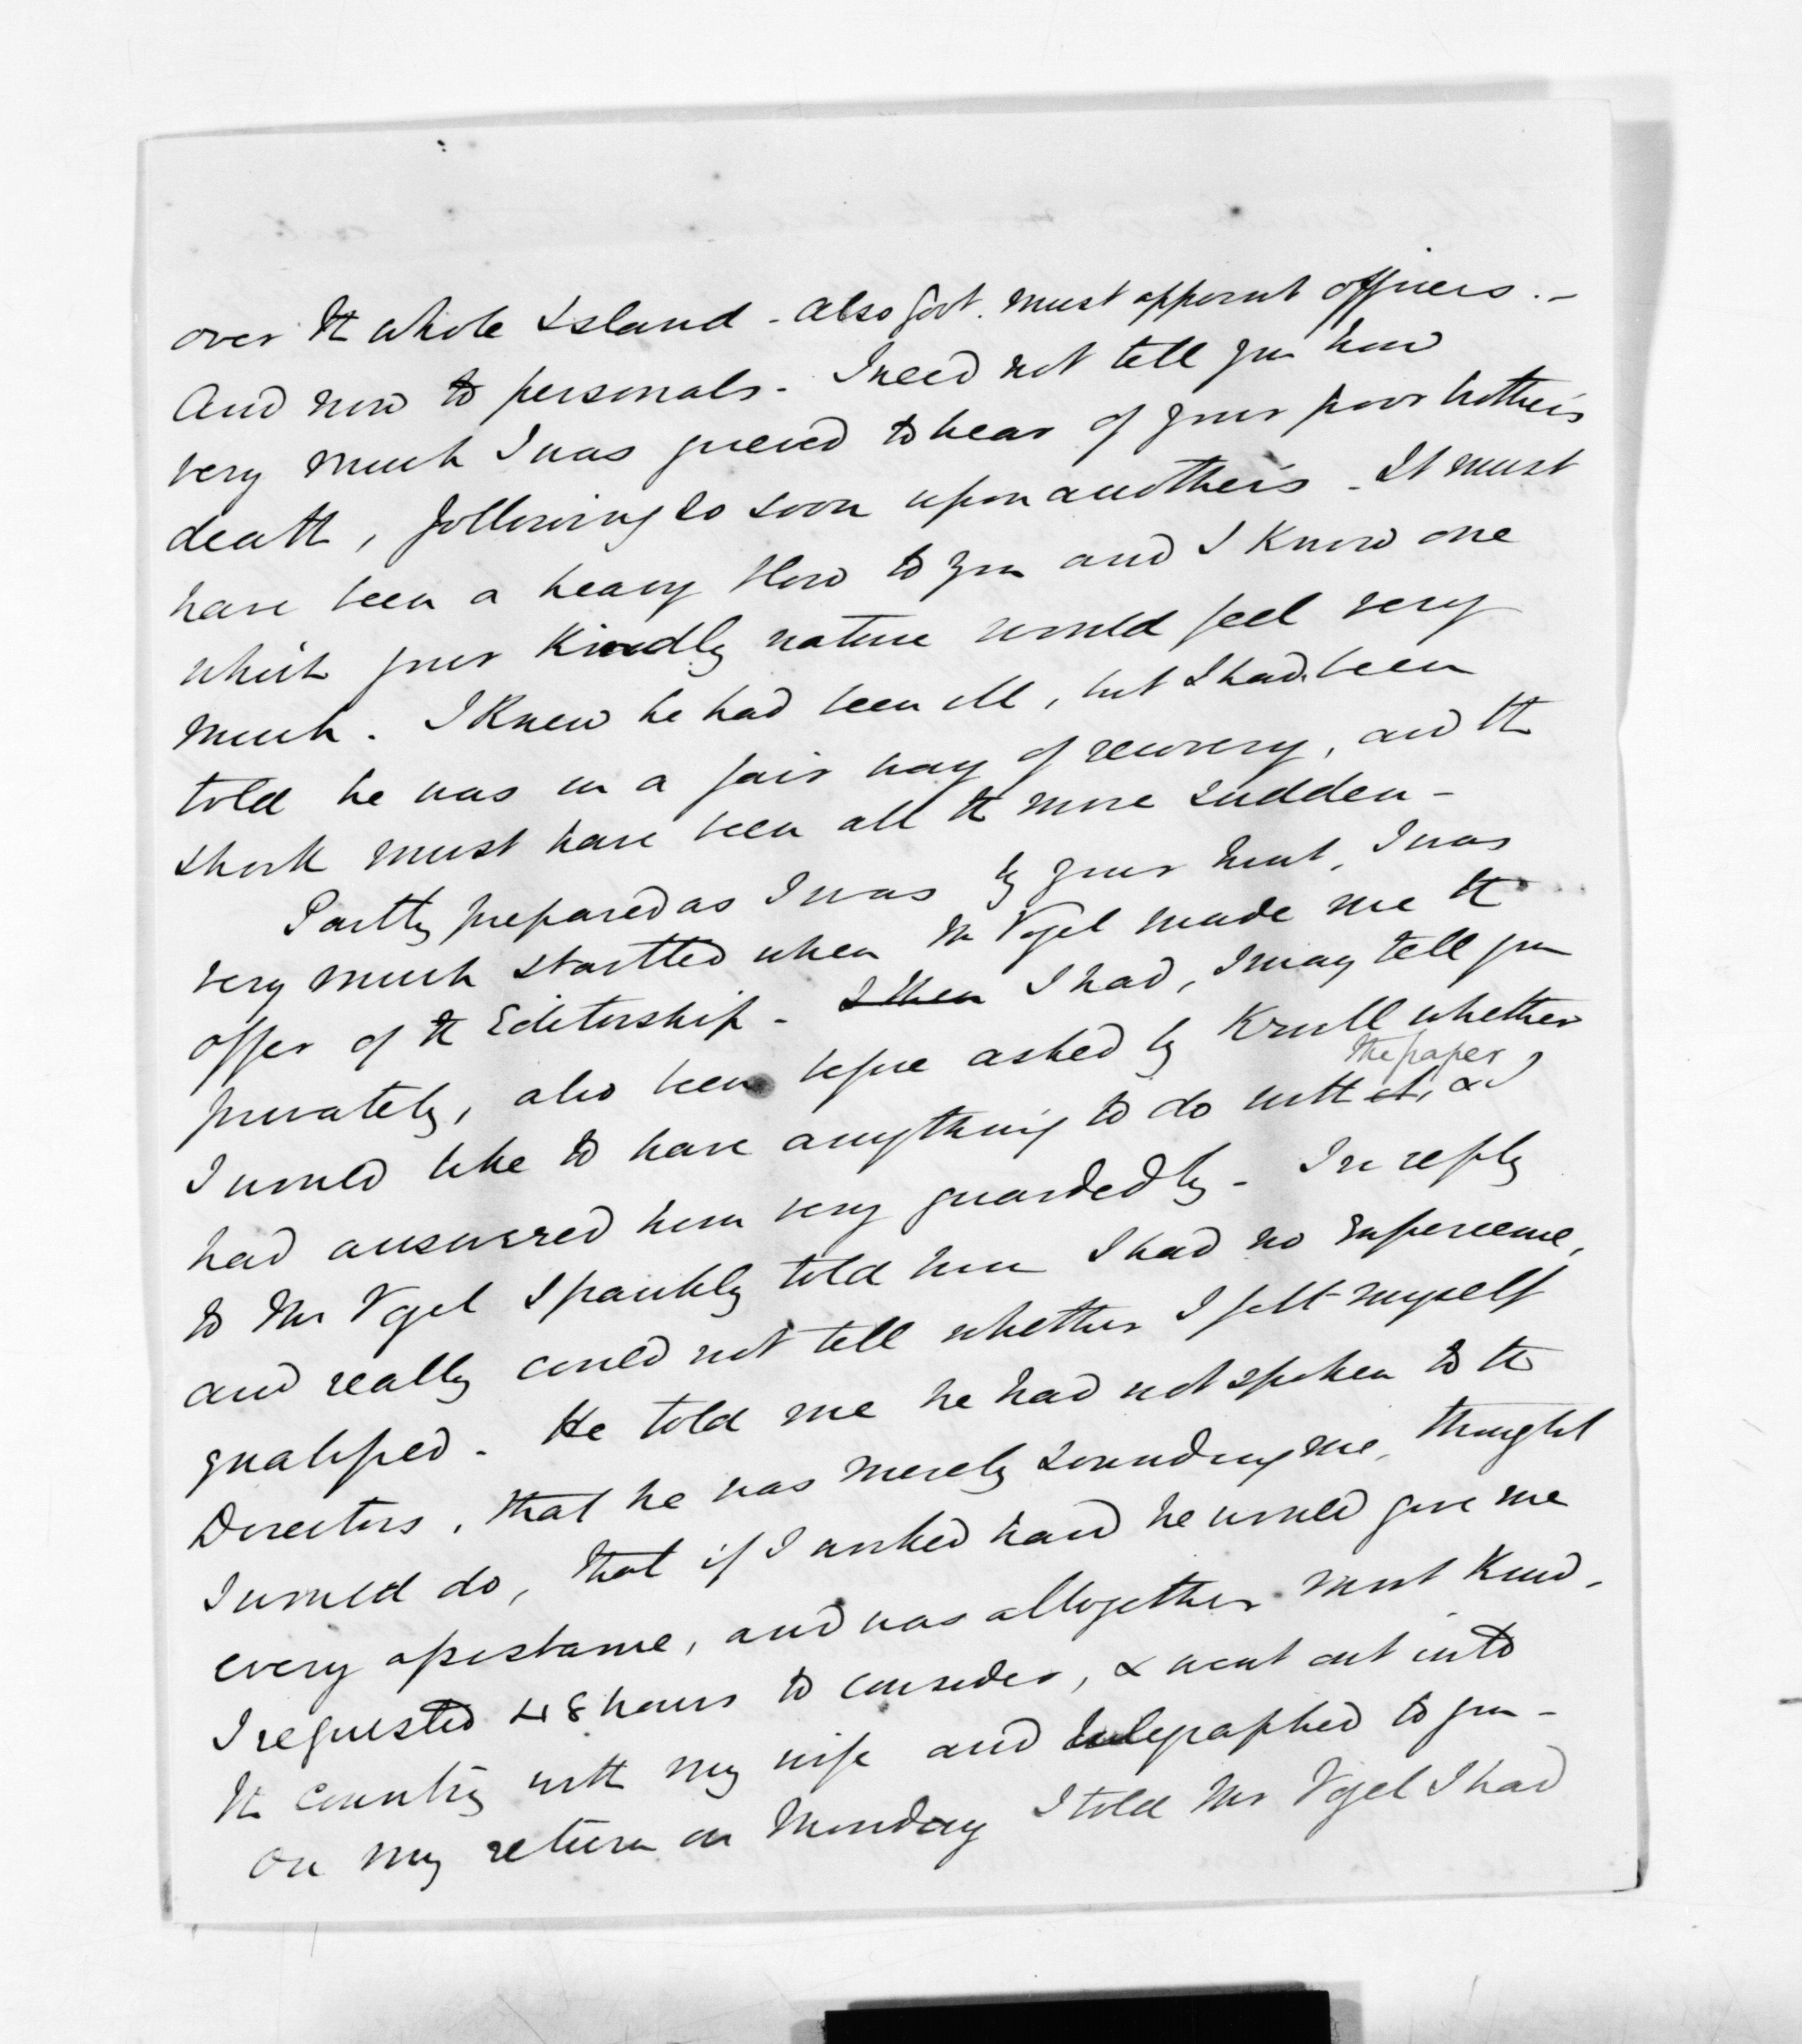 over the whole Island - also Govt. must appoint officers. -
And now to personals - I need not tell you how
very much I was grieved to hear of your poor brother's
death, following so soon upon another's - It must
have been a heavy blow to you and I know one
which your kindly nature would feel very
much. I knew he had been ill, but I had been
told he was in a fair way of recovery, and the
shock must have been all the more sudden -
Partly prepared as I was by your hint, I was
very much startled when Mr Vogel made me the
offer of the Editorship - I then I had, I may tell you
privately, also been before asked by Krull whether
the paper
I would like to have anything to do with it, & I
had answered him very guardedly - In reply
to Mr Vogel I frankly told him I had no experience,
and really could not tell whether I felt myself
qualified - He told me he had not spoken to the
Directors, that he was merely sounding me, thought
I would do, that if I worked hard he would give me
every assistance, and was altogether most kind.
I requested 48 hours to consider, & went out into
the country with my wife and telegraphed to you -
On my return on Monday I told Mr Vogel I had